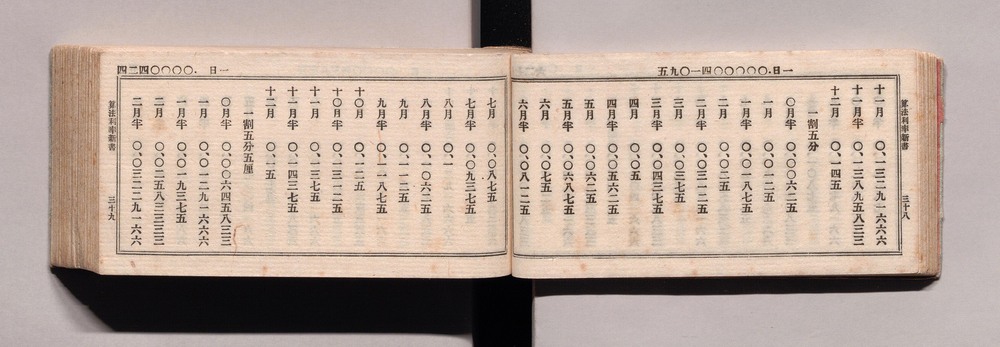 算法利率新書
三十八
一日.〇〇〇〇〇四一〇九五
十一月 〇、一三二九一六六六
十一月半 〇、一三八九五八三三
十二月 〇、一四五
一割五分
〇月半 〇、〇〇六二五
一月 〇、〇一二五
一月半 〇、〇一八七五
二月 〇、〇二五
二月半 〇、〇三一二五
三月 〇、〇三七五
三月半 〇、〇四三七五
四月 〇、〇五
四月半 〇、〇五六二五
五月 〇、〇六二五
五月半 〇、〇六八七五
六月 〇、〇七五
六月半 〇、〇八一二五
一日.〇〇〇〇四二四
七月 〇、〇八七五
七月半 〇、〇九三七五
八月 〇、一
八月半 〇、一〇六二五
九月 〇、一一二五
九月半 〇、一一八七五
十月 〇、一二五
十月半 〇、一三一二五
十一月 〇、一三七五
十一月半 〇、一四三七五
十二月 〇、一五
一割五分五厘
〇月半 〇、〇〇六四五八三三
一月 〇、〇一二九一六六六
一月半 〇、〇一九三七五
二月 〇、〇二五八三三三三
二月半 〇、〇三二二九一六六
算法利率新書
三十九